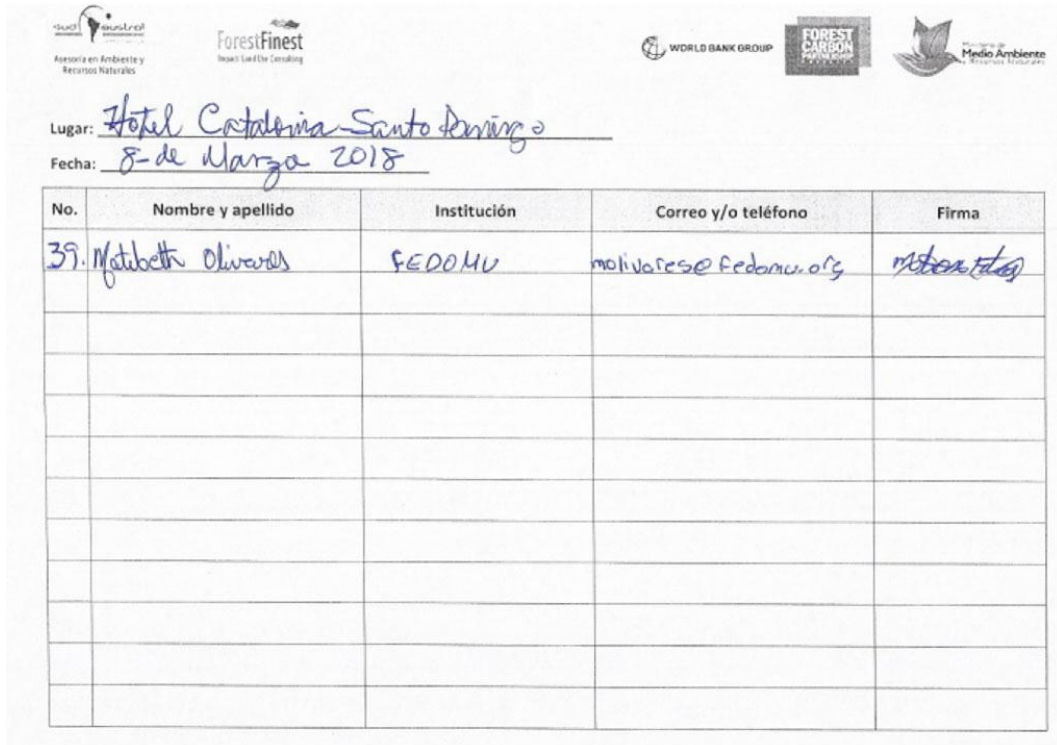 sud austral
Asesoría en Ambiente y
Recursos Naturales
ForestFinest
Impact Land Use Consulting
WORLD BANK GROUP
FOREST
CARBON
PARTNERSHIP
Ministerio de
Medio Ambiente
y Recursos Naturales
Lugar: Hotel Catalonia Santo Domingo
Fecha: 8-de Marzo 2018
No. Nombre y apellido Institución Correo y/o teléfono Firma
39. Matibeth Olivares FEDOMU molivares@fedomu.org